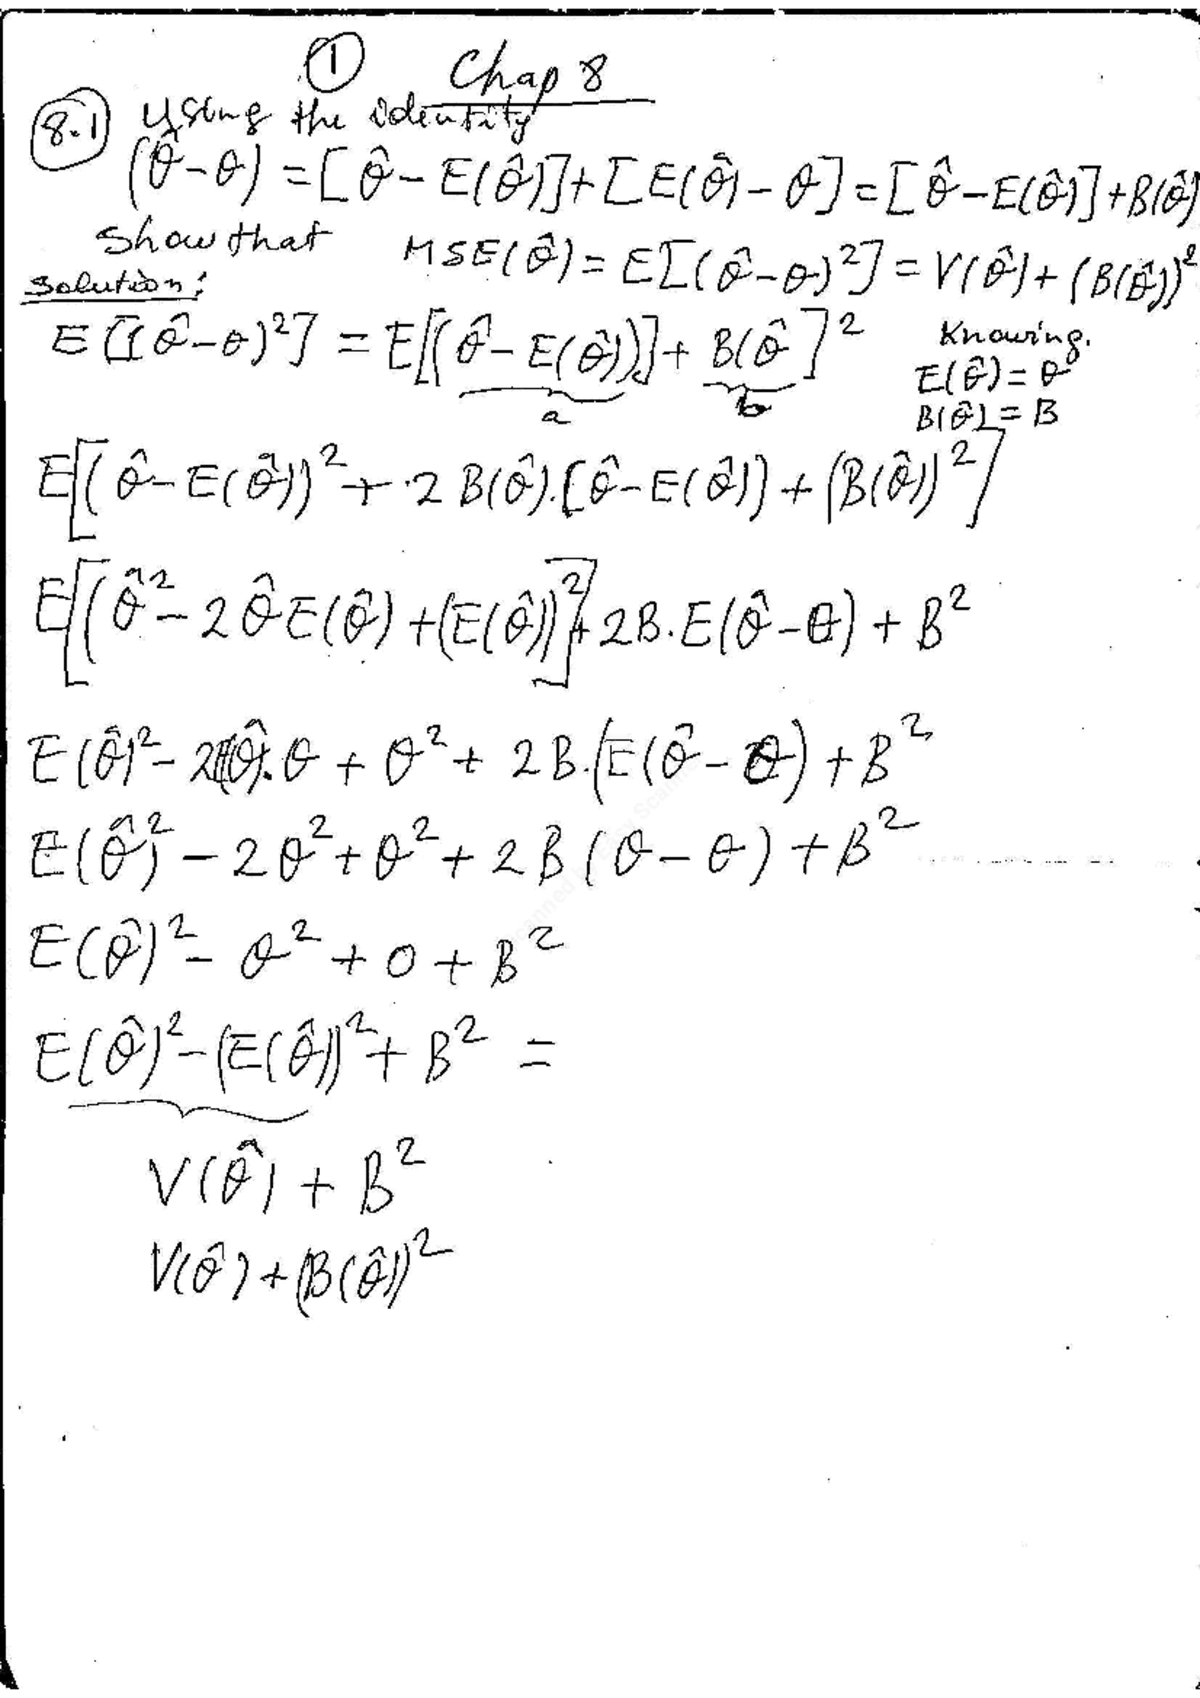 ① Chap 8
8.1 Using the identity
(θ̂ - θ) = [θ̂ - E(θ̂)] + [E(θ̂) - θ] = [θ̂ - E(θ̂)] + B(θ̂)
Show that MSE(θ̂) = E[(θ̂ - θ)²] = V(θ̂) + (B(θ̂))²
Solution:
E[(θ̂ - θ)²] = E[(θ̂ - E(θ̂))] + B(θ̂]² Knowing.
a b E(θ̂) = θ
B(θ̂) = B
E[(θ̂ - E(θ̂))² + 2 B(θ̂).[θ̂ - E(θ̂)] + (B(θ̂))²]
E[(θ̂² - 2θ̂E(θ̂) + (E(θ̂))²] + 2B.E(θ̂ - θ) + B²
E(θ̂)² - 2(θ̂).θ + θ² + 2B.(E(θ̂ - θ) + B²
E(θ̂)² - 2θ² + θ² + 2B(θ - θ) + B²
E(θ̂)² - θ² + 0 + B²
E(θ̂)² - (E(θ̂))² + B² =
V(θ̂) + B²
V(θ̂) + (B(θ̂))²